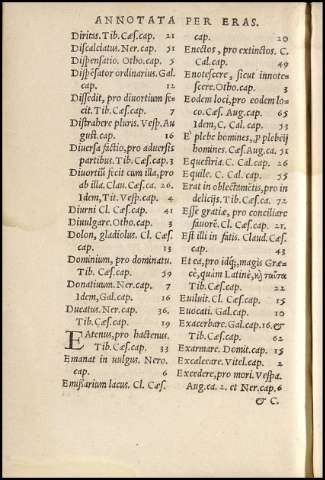 ANNOTATA PER ERAS.
Diritas. Tib. Cæs. cap. 21
Discalciatus. Ner. cap. 51
Dispensatio. Otho. cap. 5
Dispēsator ordinarius. Gal.
cap. 12
Dissedit, pro diuortium fe-
cit. Tib. Cæs. cap. 7
Distrahere pluris. Vesp. Au
gust. cap. 16
Diuersa factio, pro aduersis
partibus. Tib. Cæs. cap. 3
Diuortiū fecit cum illa, pro
ab illa. Clau. Cæs. ca. 26.
Idem, Tit. Vesp. cap. 4
Diurni Cl. Cæs. cap. 41
Diuulgare. Otho. cap. 3
Dolon, gladiolus. Cl. Cæs.
cap. 13
Dominium, pro dominatu.
Tib. Cæs. cap. 59
Donatiuum. Ner. cap. 7
Idem, Gal. cap. 16
Ducatus. Ner. cap. 36.
Tib. Cæs. cap. 19
EAtenus, pro hactenus.
Tib. Cæs. cap. 33
Emanat in uulgus. Nero.
cap. 6
Emissarium lacus. Cl. Cæs.
cap. 20
Enectos, pro extinctos. C.
Cal. cap. 49
Enotescere, sicut innote-
scere. Otho. cap. 3
Eodem loci, pro eodem lo-
co. Cæs. Aug. cap. 65
Idem, C. Cal. cap. 53
E' plebe homines, p plebeij
homines. Cæs. Aug. ca. 51
Equestria. C. Cal. cap. 26
Equile. C. Cal. cap. 55
Erat in oblectamētis, pro in
delicijs. Tib. Cæs. cap. 72
Esse gratiæ, pro conciliare
fauorē. Cl. Cæs. cap. 21.
Est illi in fatis. Claud. Cæs.
cap. 43
Et ea, pro idq;, magis Græ
cè, quàm Latinè,
Tib. Cæs. cap. 11
Euiluit. Cl. Cæs. cap. 15
Euocati. Gal. cap. 10
Exacerbare. Gal. cap. 16. &
Tib. Cæs. cap. 62
Exarmare. Domit. cap. 15
Excalcerare. Vitel. cap. 2
Excedere, pro mori. Vespa.
Aug. ca. 2. et Ner. cap. 6
& C.